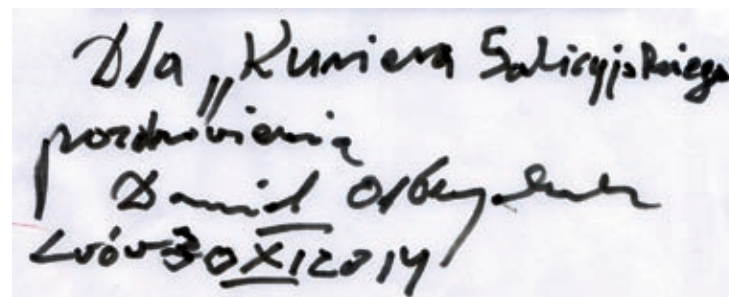 Dla „Kuriera Galicyjskiego
pozdrowienia
Daniel Olbrychski
Lwów 30 XI 2014